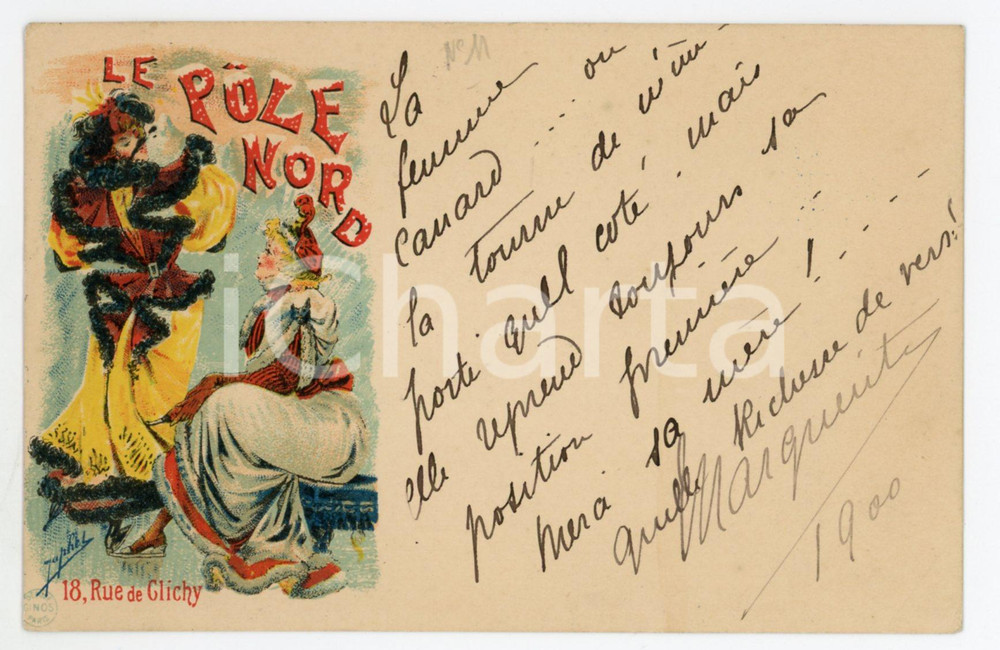 LE
PÔLE
NORD
Japhet
18, Rue de Clichy
GINOS
PARIS
N° 11
La
femme ou
canard ... on
tourne de m'im
la porte quel coté, mais
elle reprend toujours sa
position première !
Mera sa mère !
quelle Richesse de vers!
Marguerite
1900
iCharta